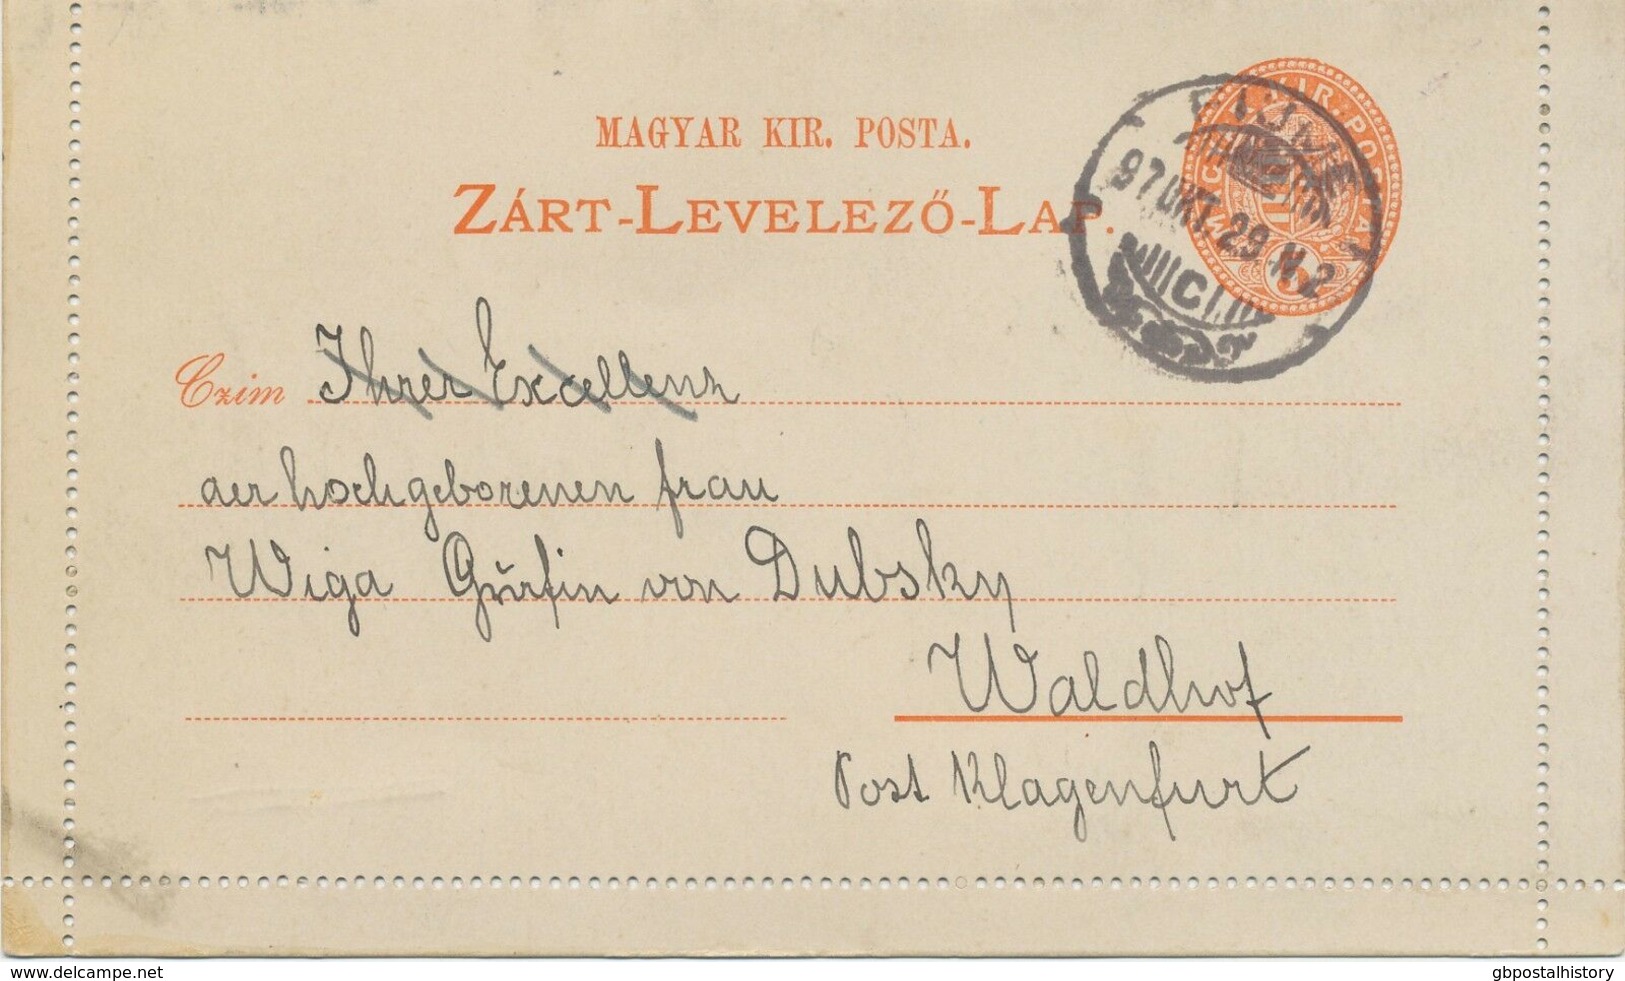 MAGYAR KIR. POSTA.
ZÁRT-LEVELEZŐ-LAP.
M. KIR. POSTA
FIUME
97 OKT. 29. N. 2
Czim Ihrer Excellenz
der hochgeborenen frau
Wiga Gräfin von Dubsky
Waldhof
Post Klagenfurt
www.delcampe.net
gbpostalhistory